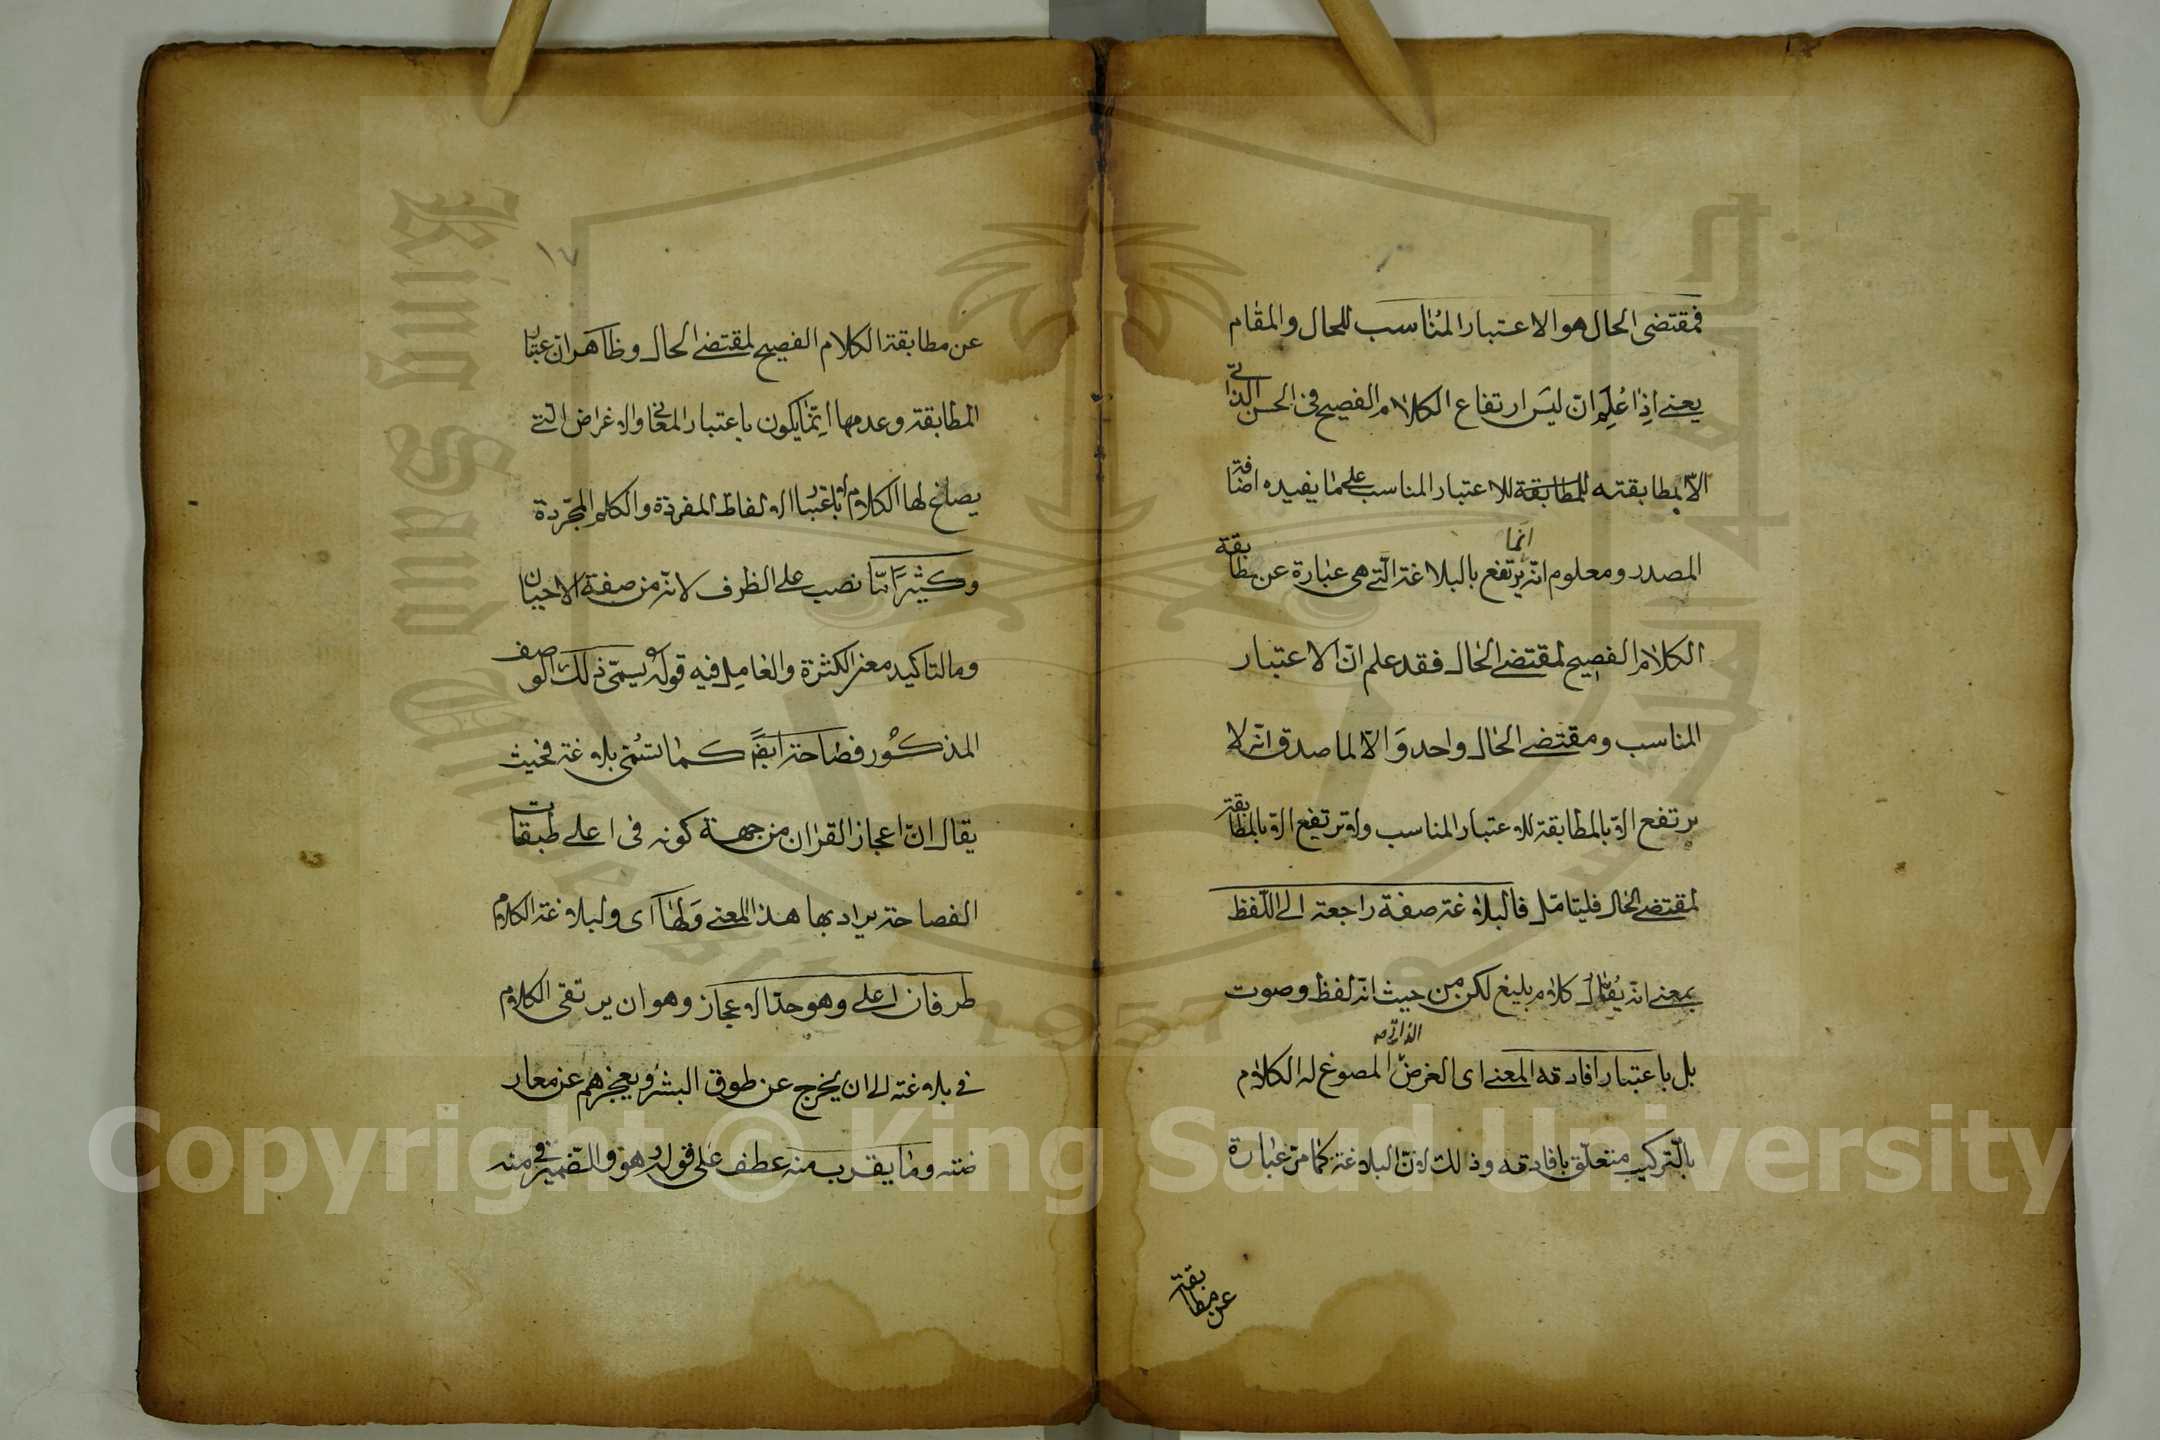 فمقتضى الحال هو الاعتبار المناسب للحال والمقام
يعنى اذا علم ان ليس ارتفاع الكلام الفصيح فى الحسن الذاتى
الا بمطابقته للمطابقة للاعتبار المناسب على ما يفيده اضافة
المصدر ومعلوم انه انما يرتفع بالبلاغة التى هى عبارة عن مطابقة
الكلام الفصيح لمقتضى الحال فقد علم ان الاعتبار
المناسب ومقتضى الحال واحد والا لما صدق انه لا
يرتفع الا بالمطابقة للاعتبار المناسب ولا يرتفع الا بالمطابقة
لمقتضى الحال فليتامل فالبلاغة صفة راجعة الى اللفظ
بمعنى انه يقال كلام بليغ لكن من حيث انه لفظ وصوت
بل باعتبار افادته المعنى اى الغرض المصوغ له الكلام
بالتركيب متعلق بافادته وذلك لان البلاغة كما مر عبارة
عن مطابقة
١٧
عن مطابقة الكلام الفصيح لمقتضى الحال وظاهر ان عتبار
المطابقة وعدمها انما يكون باعتبار المعانى والاغراض التى
يصاغ لها الكلام لا باعتبار الالفاظ المفردة والكلم المجردة
وكثيرا ما نصب على الظرف لانه من صفة الاحيان
وما لتاكيد معنى الكثرة والعامل فيه قوله يسمى ذلك الوصف
المذكور فصاحة ايضا كما تسمى بلاغة فحيث
يقال ان اعجاز القران من جهة كونه فى اعلى طبقات
الفصاحة يراد بها هذا المعنى ولها اى ولبلاغة الكلام
طرفان اعلى وهو حد الاعجاز وهو ان يرتقى الكلام
فى بلاغته الى ان يخرج عن طوق البشر ويعجزهم عن معار
ضته وما يقرب منه عطف على قوله وهو والضمير فى منه
Copyright © King Saud University
King Saud University
1957